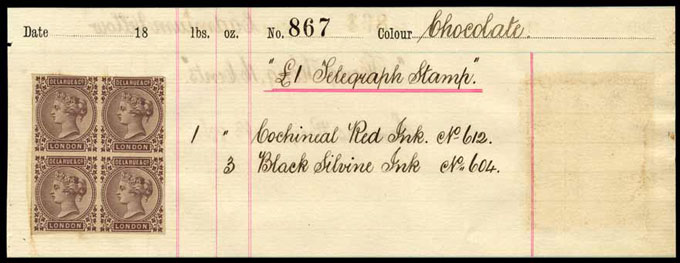 Date 18 lbs. oz. No. 867 Colour Chocolate.
"£1 Telegraph Stamp."
DE LA RUE & Co. DE LA RUE & Co.
LONDON LONDON
DE LA RUE & Co. DE LA RUE & Co.
LONDON LONDON
1 " Cochineal Red Ink. No. 612.
3 Black Silvine Ink No. 604.